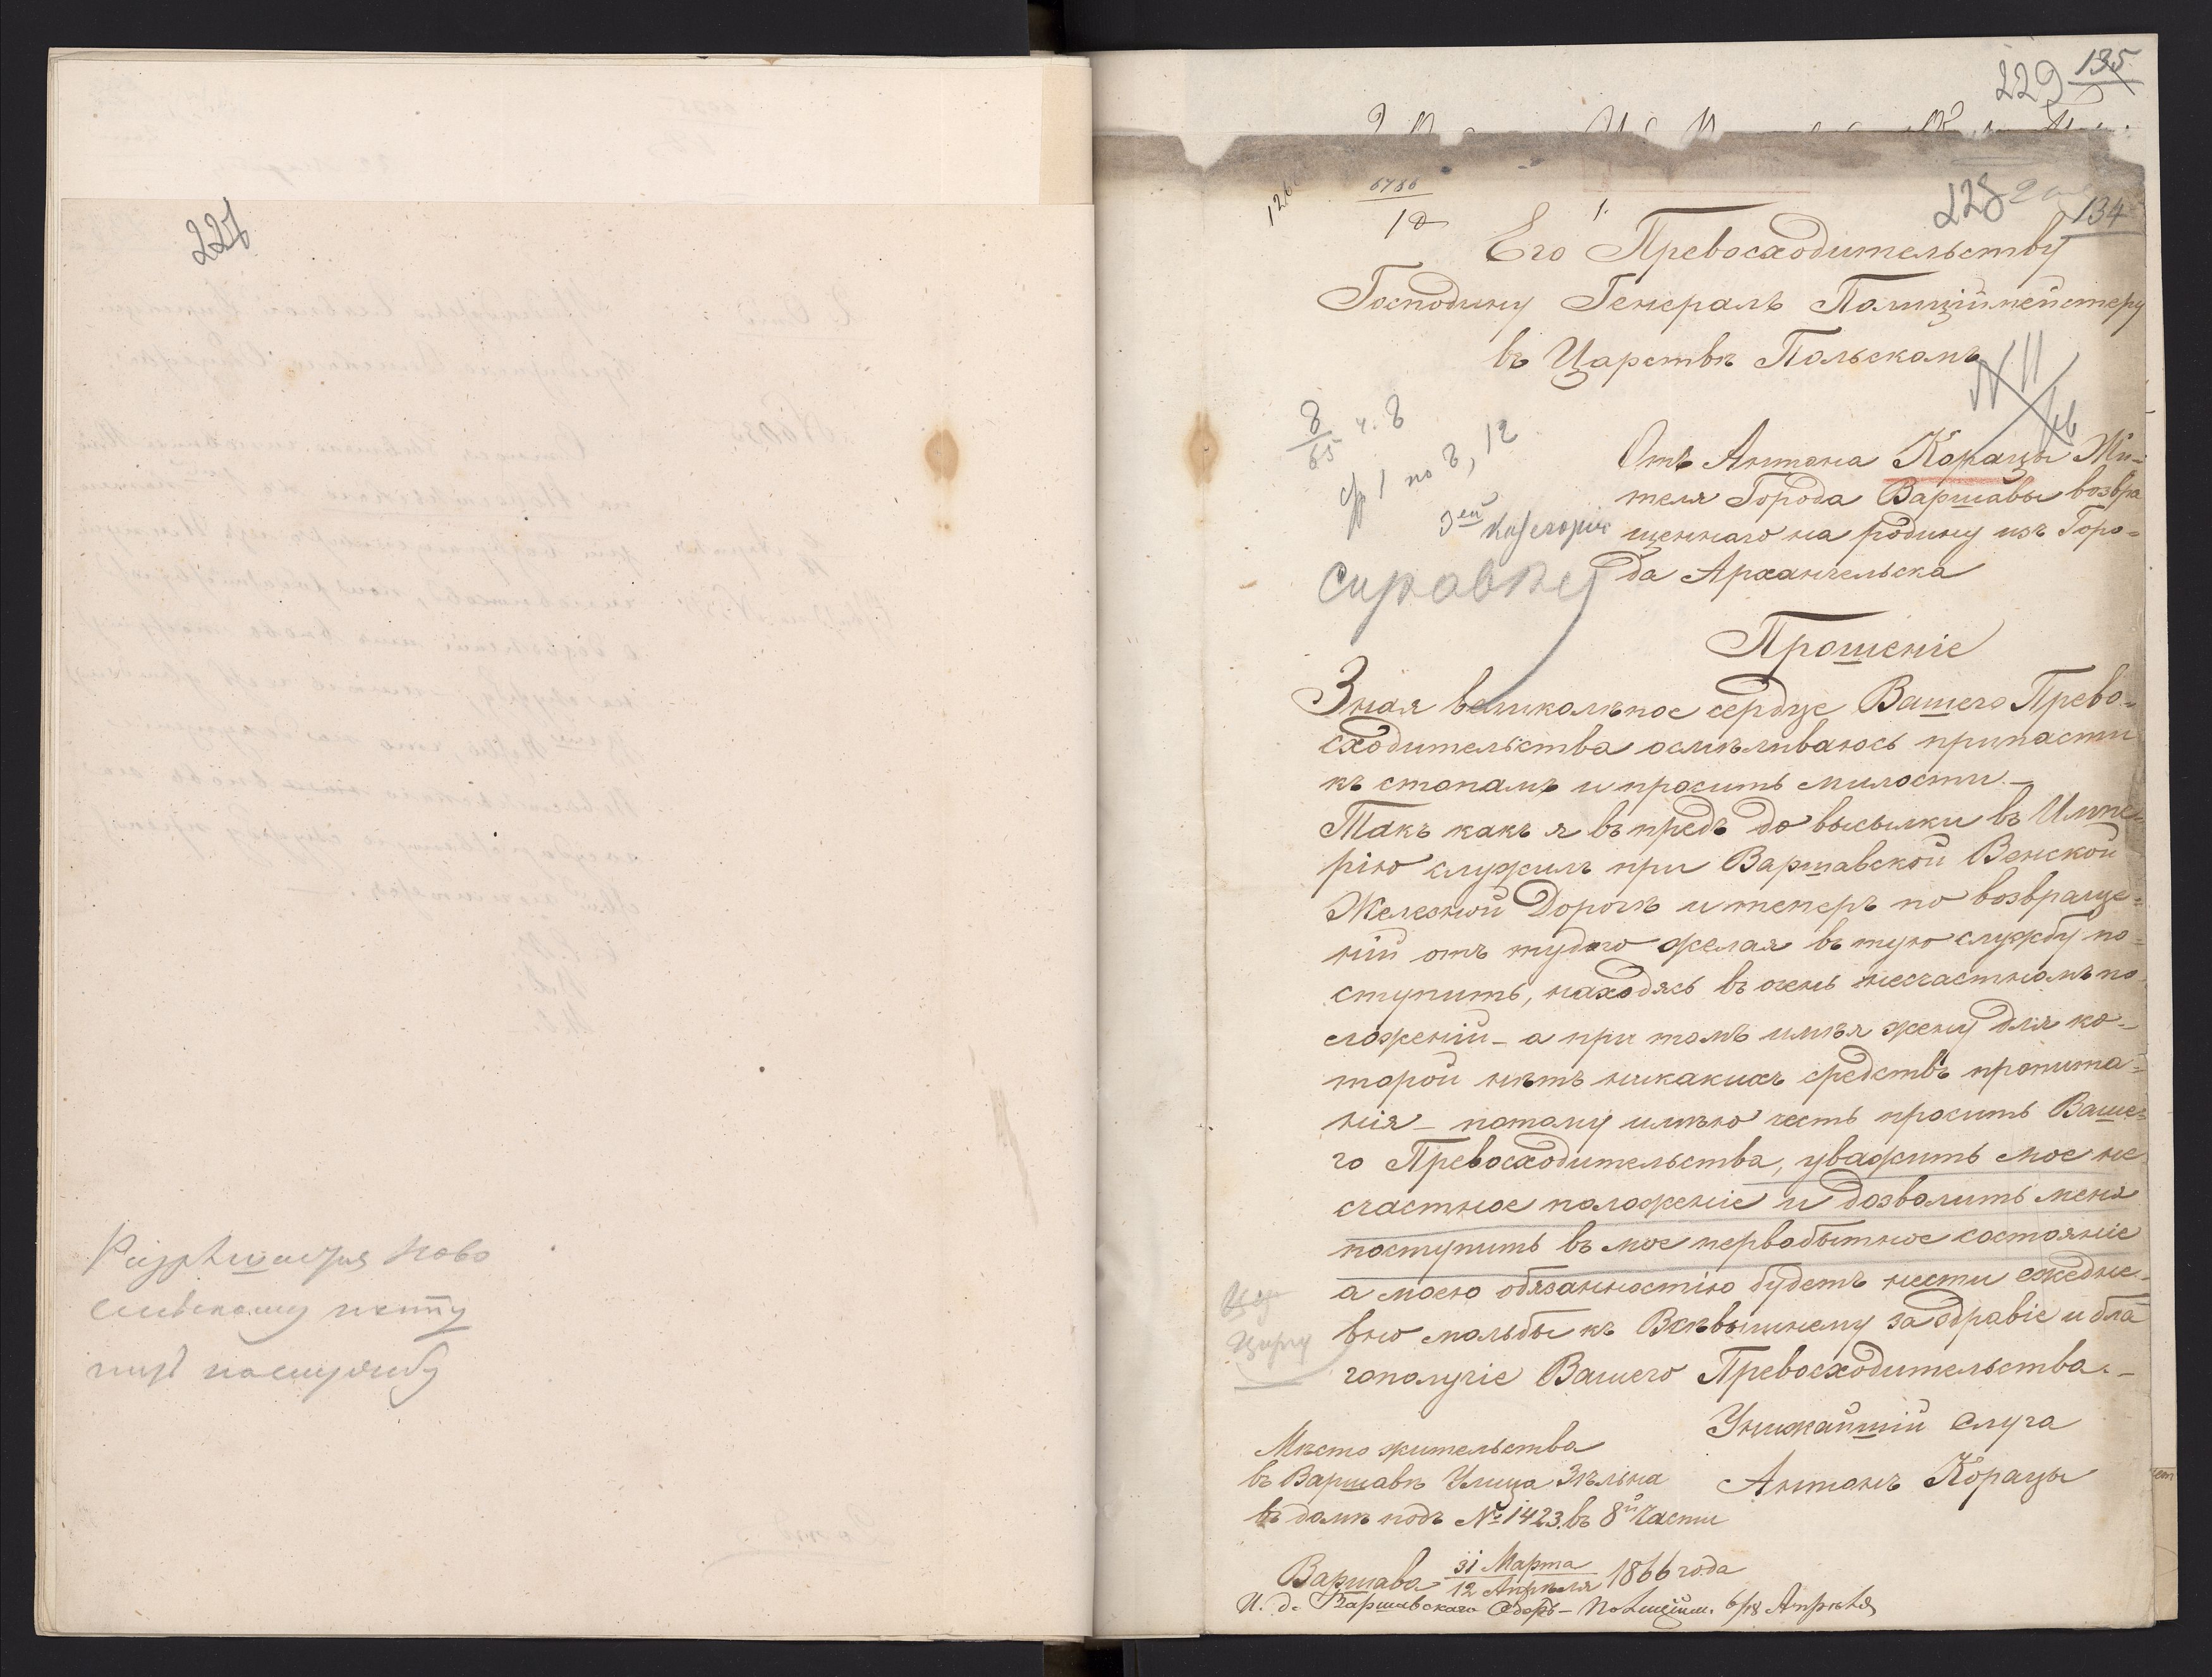 227
Разрѣшается Ново
на службу
229 135
126
6786
12
1.
228
134
Его Превосходительству
Господину Генералъ Полиціймейстеру
въ Царствѣ Польскомъ
8/65 ч. 8
стр 1 по 8, 12
3ей Категоріи
справку
Отъ Антона Корацы Жи-
теля Города Варшавы возвра
щеннаго на родину изъ Горо-
да Архангельска
Прошеніе
Зная великолѣпое сердце Вашего Прево-
сходительства осмѣливаюсь припасти
къ стопамъ и просить милости.—
Такъ какъ я въ предъ до высылки въ Импе-
рію служилъ при Варшавской Венской
Железной Дорогѣ и теперъ по возвраще-
ніи отъ тудого желая въ тую службу по-
ступить, находясь въ очень несчастномъ по-
ложеніи - а при томъ имѣя жену для ко-
торой нѣтъ никакихъ средствъ пропита-
нія - потому имѣю честь просить Ваше-
го Превосходительства, уважить мое не
счастное положеніе и дозволить меня
поступить въ мое первобытное состояніе
а моею обязанностію будетъ нести ежедне-
вно мольбы къ Всѣвышнему за здравіе и бла
гополучіе Вашего Превосходительства.—
Унижайшій Слуга
Антонъ Корацы
Мѣсто жительства
въ Варшавѣ Улица Зѣльна
въ домѣ подъ № 1423. въ 8й Части
Варшава 31 Марта / 12 Апрѣля 1866 года
И. д. Варшавскаго Оберъ-Полиційм. 6/18 Апрѣля